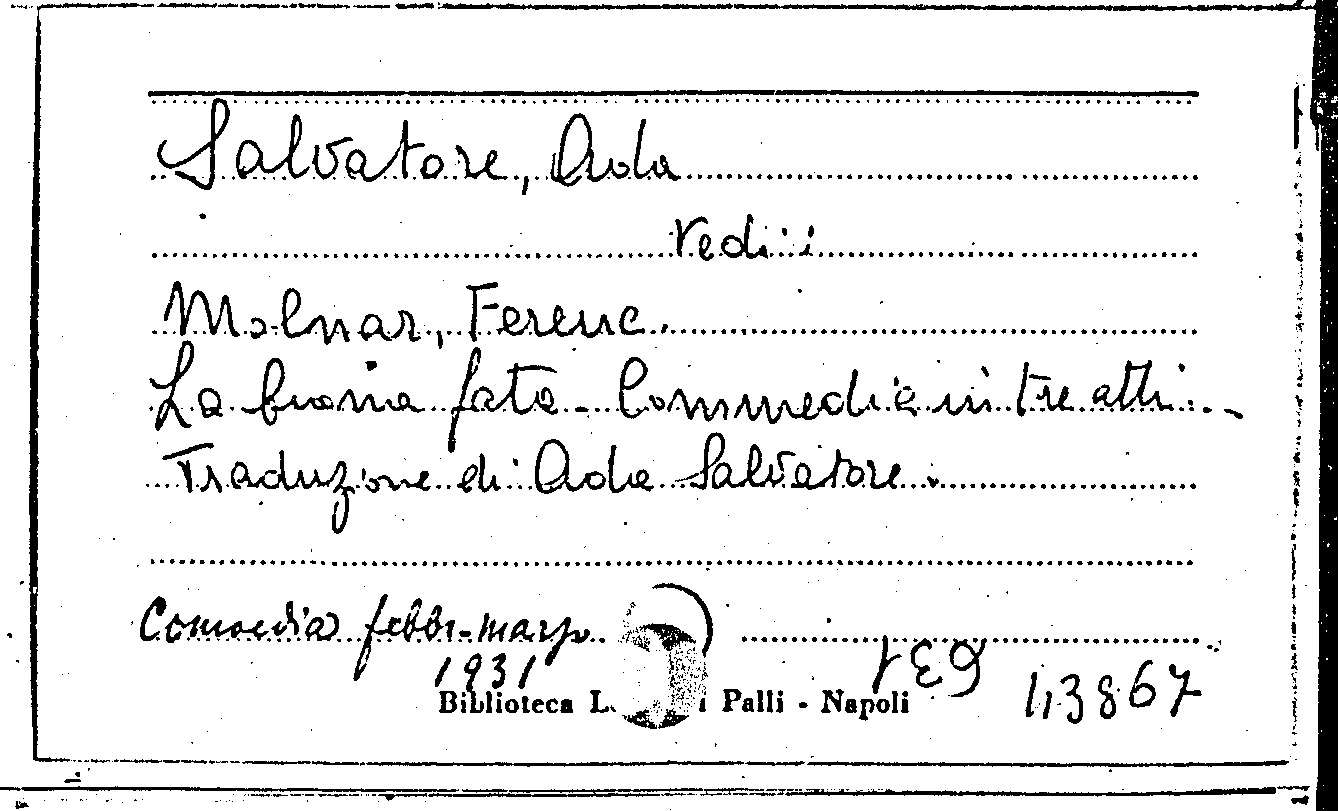 Salvatore, Ada
Vedi:
Molnar, Ferenc.
La buona fata - Commedia in tre atti. -
Traduzione di Ada Salvatore.
Comoedia febbr-marzo
1931
Biblioteca L. i Palli - Napoli
113867